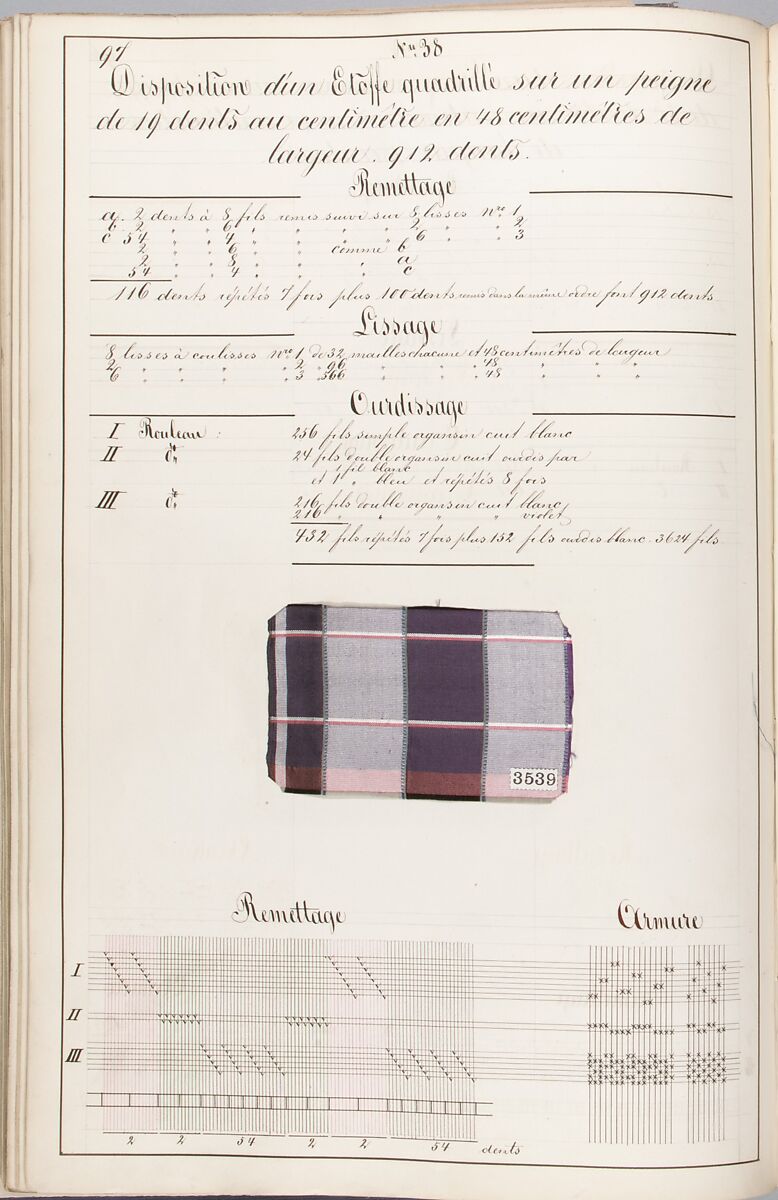 97
Nro 38
Disposition d'un Etoffe quadrillé sur un peigne
de 19 dents au centimètre en 48 centimètres de
largeur. 912 dents.
Remettage
a. 2 dents à 8 fils remis suivi sur 8 lisses Nro 1
b 2 " " 6 " " " " 2 " " 2
c 54 " " 4 " " " " 6 " " 3
2 " " 6 " comme b
2 " " 8 " " a
54 " " 4 " " c
116 dents répétés 7 fois plus 100 dents remis dans la même ordre font 912 dents
Lissage
8 lisses à coulisses Nro 1 de 32 mailles chacune et 48 centimètres de largeur
2 " " " " 2 " 96 " " " 48 " " "
6 " " " " 3 " 566 " " " 48 " " "
Ourdissage
I Rouleau : 256 fils simple organsin cuit blanc
II do 24 fils double organsin cuit ourdis par
1 fil blanc
et 1 " bleu et répétés 8 fois
III do 216 fils double organsin cuit blanc
216 " " " " violet
432 fils répétés 7 fois plus 152 fils ourdis blanc. 3624 fils
3539
Remettage
Armure
I
II
III
2 2 54 2 2 54 dents